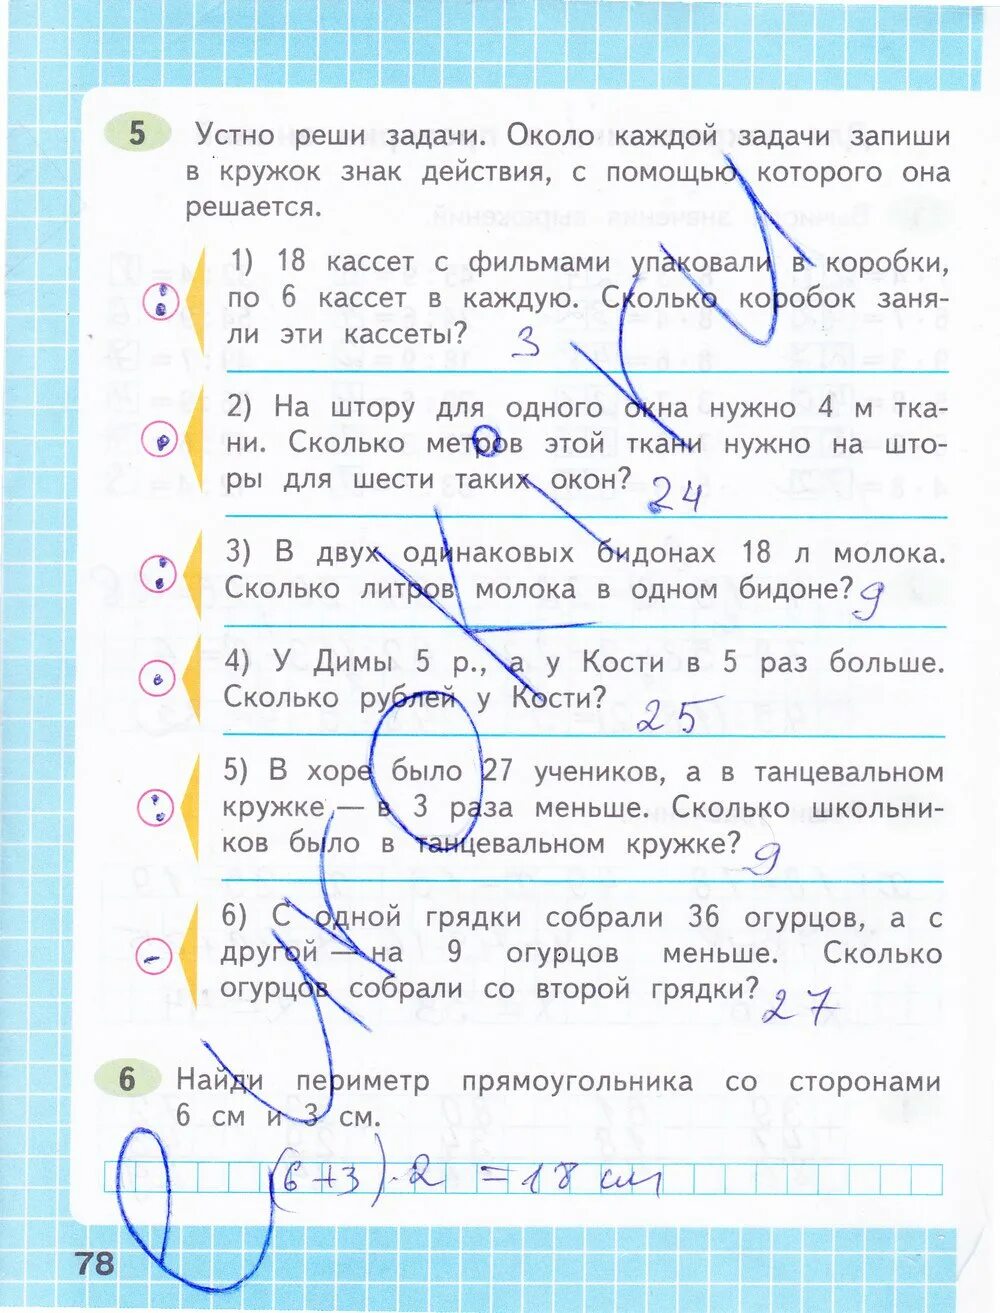 5 Устно реши задачи. Около каждой задачи запиши
в кружок знак действия, с помощью которого она
решается.
1) 18 кассет с фильмами упаковали в коробки,
: по 6 кассет в каждую. Сколько коробок заня-
ли эти кассеты? 3
2) На штору для одного окна нужно 4 м тка-
ни. Сколько метров этой ткани нужно на што-
ры для шести таких окон? 24
3) В двух одинаковых бидонах 18 л молока.
: Сколько литров молока в одном бидоне? 9
4) У Димы 5 р., а у Кости в 5 раз больше.
· Сколько рублей у Кости? 25
5) В хоре было 27 учеников, а в танцевальном
: кружке — в 3 раза меньше. Сколько школьни-
ков было в танцевальном кружке? 9
6) С одной грядки собрали 36 огурцов, а с
- другой — на 9 огурцов меньше. Сколько
огурцов собрали со второй грядки? 27
6 Найди периметр прямоугольника со сторонами
6 см и 3 см.
(6+3)·2 = 18 см
78